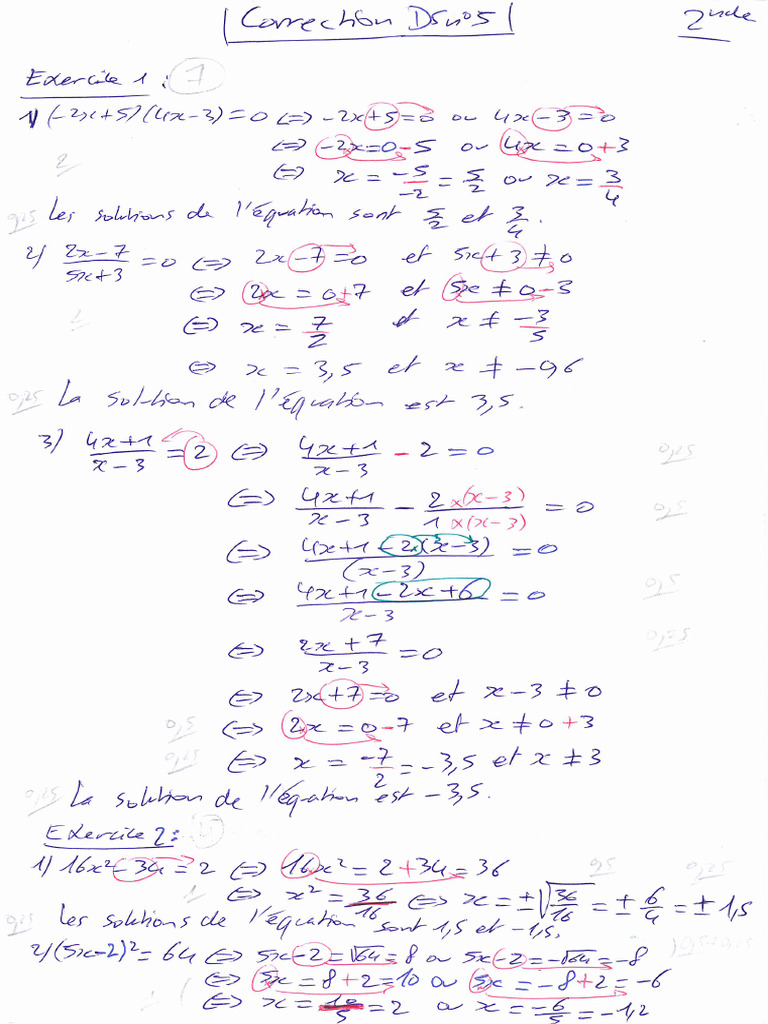 Correction DS n°5
2nde
Exercice 1 : 7
1) (-2x+5)(4x-3)=0 <=> -2x+5=0 ou 4x-3=0
<=> -2x=0-5 ou 4x=0+3
2 <=> x = -5/-2 = 5/2 ou x = 3/4
0,25 Les solutions de l'équation sont 5/2 et 3/4.
2) (2x-7)/(5x+3) = 0 <=> 2x-7=0 et 5x+3≠0
<=> 2x = 0+7 et 5x ≠ 0-3
1 <=> x = 7/2 et x ≠ -3/5
<=> x = 3,5 et x ≠ -0,6
0,25 La solution de l'équation est 3,5.
3) (4x+1)/(x-3) = 2 <=> (4x+1)/(x-3) - 2 = 0 0,25
<=> (4x+1)/(x-3) - (2×(x-3))/(1×(x-3)) = 0 0,5
<=> (4x+1-2×(x-3))/(x-3) = 0
<=> (4x+1-2x+6)/(x-3) = 0 0,5
<=> (2x+7)/(x-3) = 0 0,25
<=> 2x+7=0 et x-3≠0
0,5 <=> 2x = 0-7 et x≠0+3
0,25 <=> x = -7/2 = -3,5 et x≠3
0,25 La solution de l'équation est -3,5.
Exercice 2 :
1) 16x²-34=2 <=> 16x²=2+34=36 0,5 0,25
1 <=> x² = 36/16 <=> x = ±√(36/16) = ±6/4 = ±1,5
0,25 Les solutions de l'équation sont 1,5 et -1,5.
2) (5x-2)²=64 <=> 5x-2=√64=8 ou 5x-2=-√64=-8
<=> 5x=8+2=10 ou 5x=-8+2=-6
<=> x=10/5=2 ou x=-6/5=-1,2